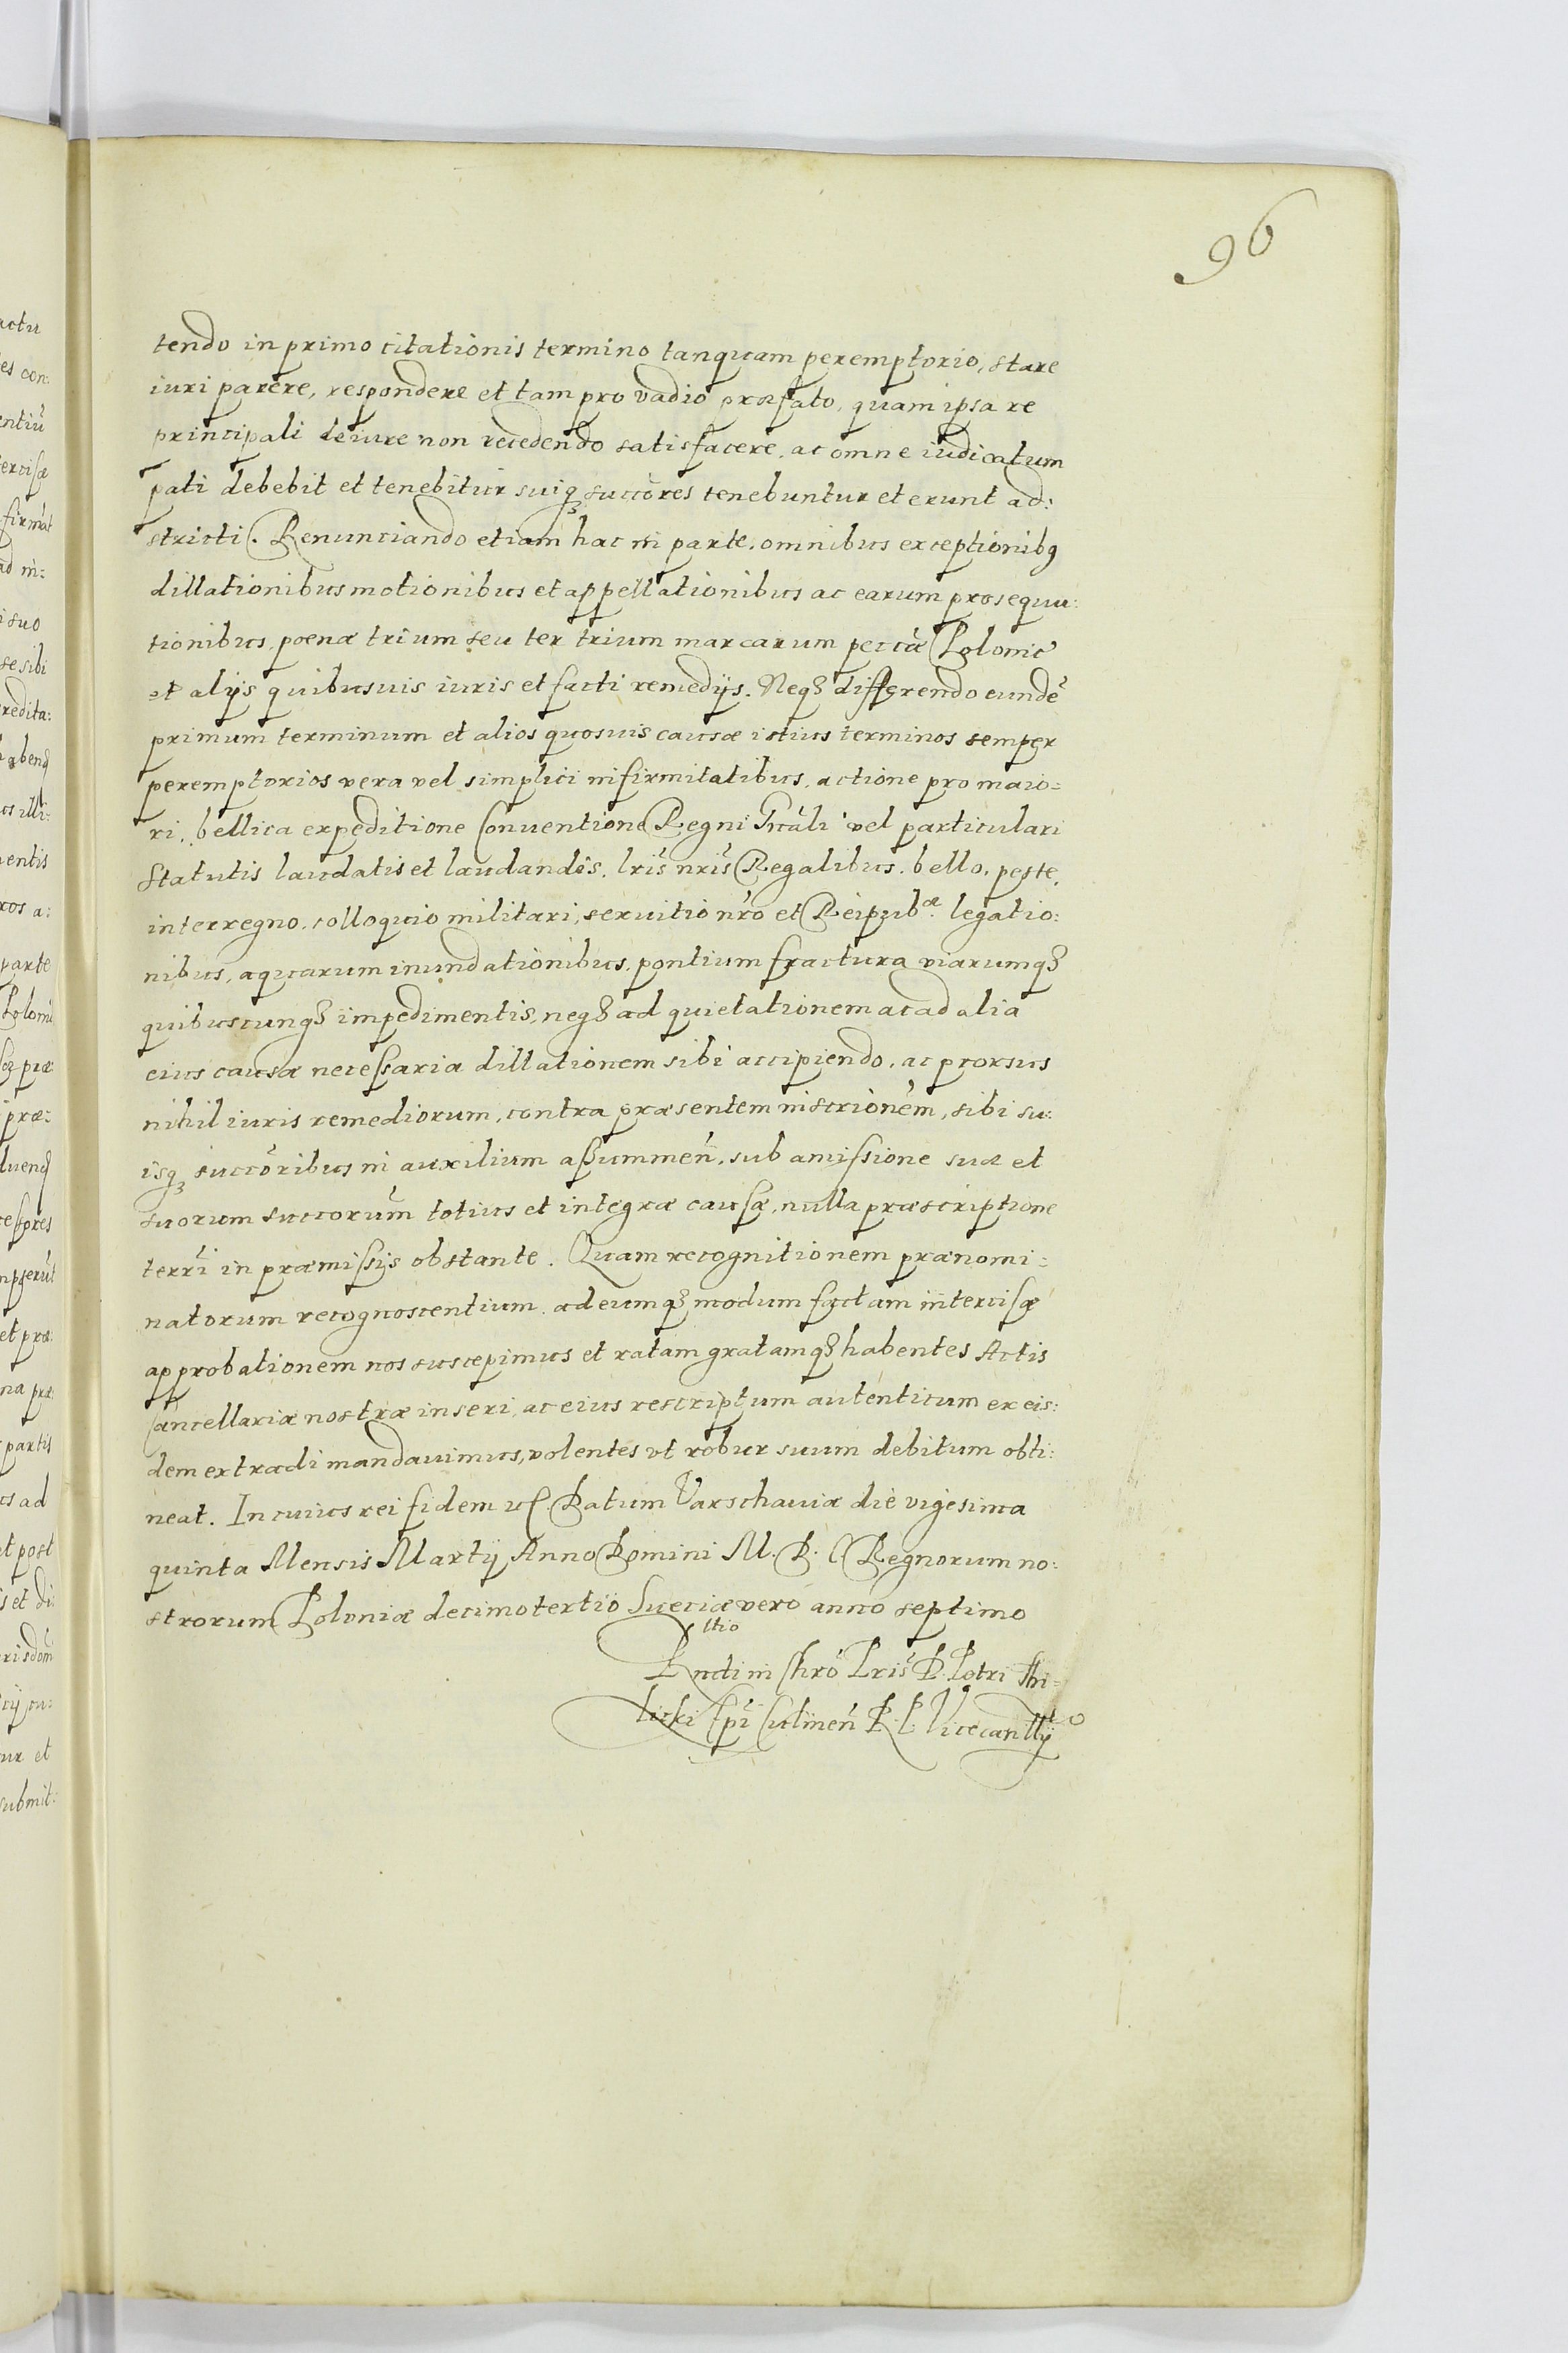 96
tendo in primo citationis termino tanquam peremptorio, stare
iuri parere, respondere et tam pro vadio præfato, quam ipsa re
principali de iure non recedendo satisfacere, ac omne iudicatum
pati debebit et tenebitur suiq₃ succōres tenebuntur et erunt ad:
stricti. Renunciando etiam hac in parte, omnibus exceptionibꝰ
dillationibus motionibus et appellationibus ac earum prosequu:
tionibus, poenæ trium seu ter trium marcarum peccæ Polonic
et alÿs quibusuis iuris et facti remedÿs. Neqꝫ differendo eundē
primum terminum et alios quosuis causæ istius terminos semper
peremptorios vera vel simplici infirmitatibus, actione pro maio=
ri, bellica expeditione Conuentione Regni Gnāli vel particulari
Statutis laudatis et laudandis, lrīs nrīs Regalibus, bello, peste,
interregno, colloquio militari, seruitio nrō et Reipubᵃᵉ. legatio:
nibus, aquarum inundationibus, pontium fractura viarumqꝫ
quibuscunqꝫ impedimentis, neqꝫ ad quietationem ac ad alia
eius causæ necessaria dillationem sibi accipiendo, ac prorsus
nihil iuris remediorum, contra præsentem inscriōnem, sibi su:
isq₃ succōribus in auxilium assummeñ, sub amissione suæ et
suorum succorum̄ totius et integræ causæ, nulla præscriptione
terrī in præmissis obstante. Quam recognitionem prænomi=
natorum recognoscentium, ad eumqꝫ modum factam intercisæ
approbationem nos suscepimus et ratam gratamqꝫ habentes Actis
Cancellariæ nostræ inseri, ac eius rescriptum autenticum ex eis:
dem extradi mandauimus, volentes vt robur suum debitum obti:
neat. In cuius rei fidem etc. Datum Varschauiæ die vigesima
quinta Mensis Martÿ Anno Domini M. D. C Regnorum no:
strorum Poloniæ decimotertio Sueciæ vero anno septimo
Rndi in Chrō Pris D. Petri
Epi Culmeñ R. P. Vicecancllÿ